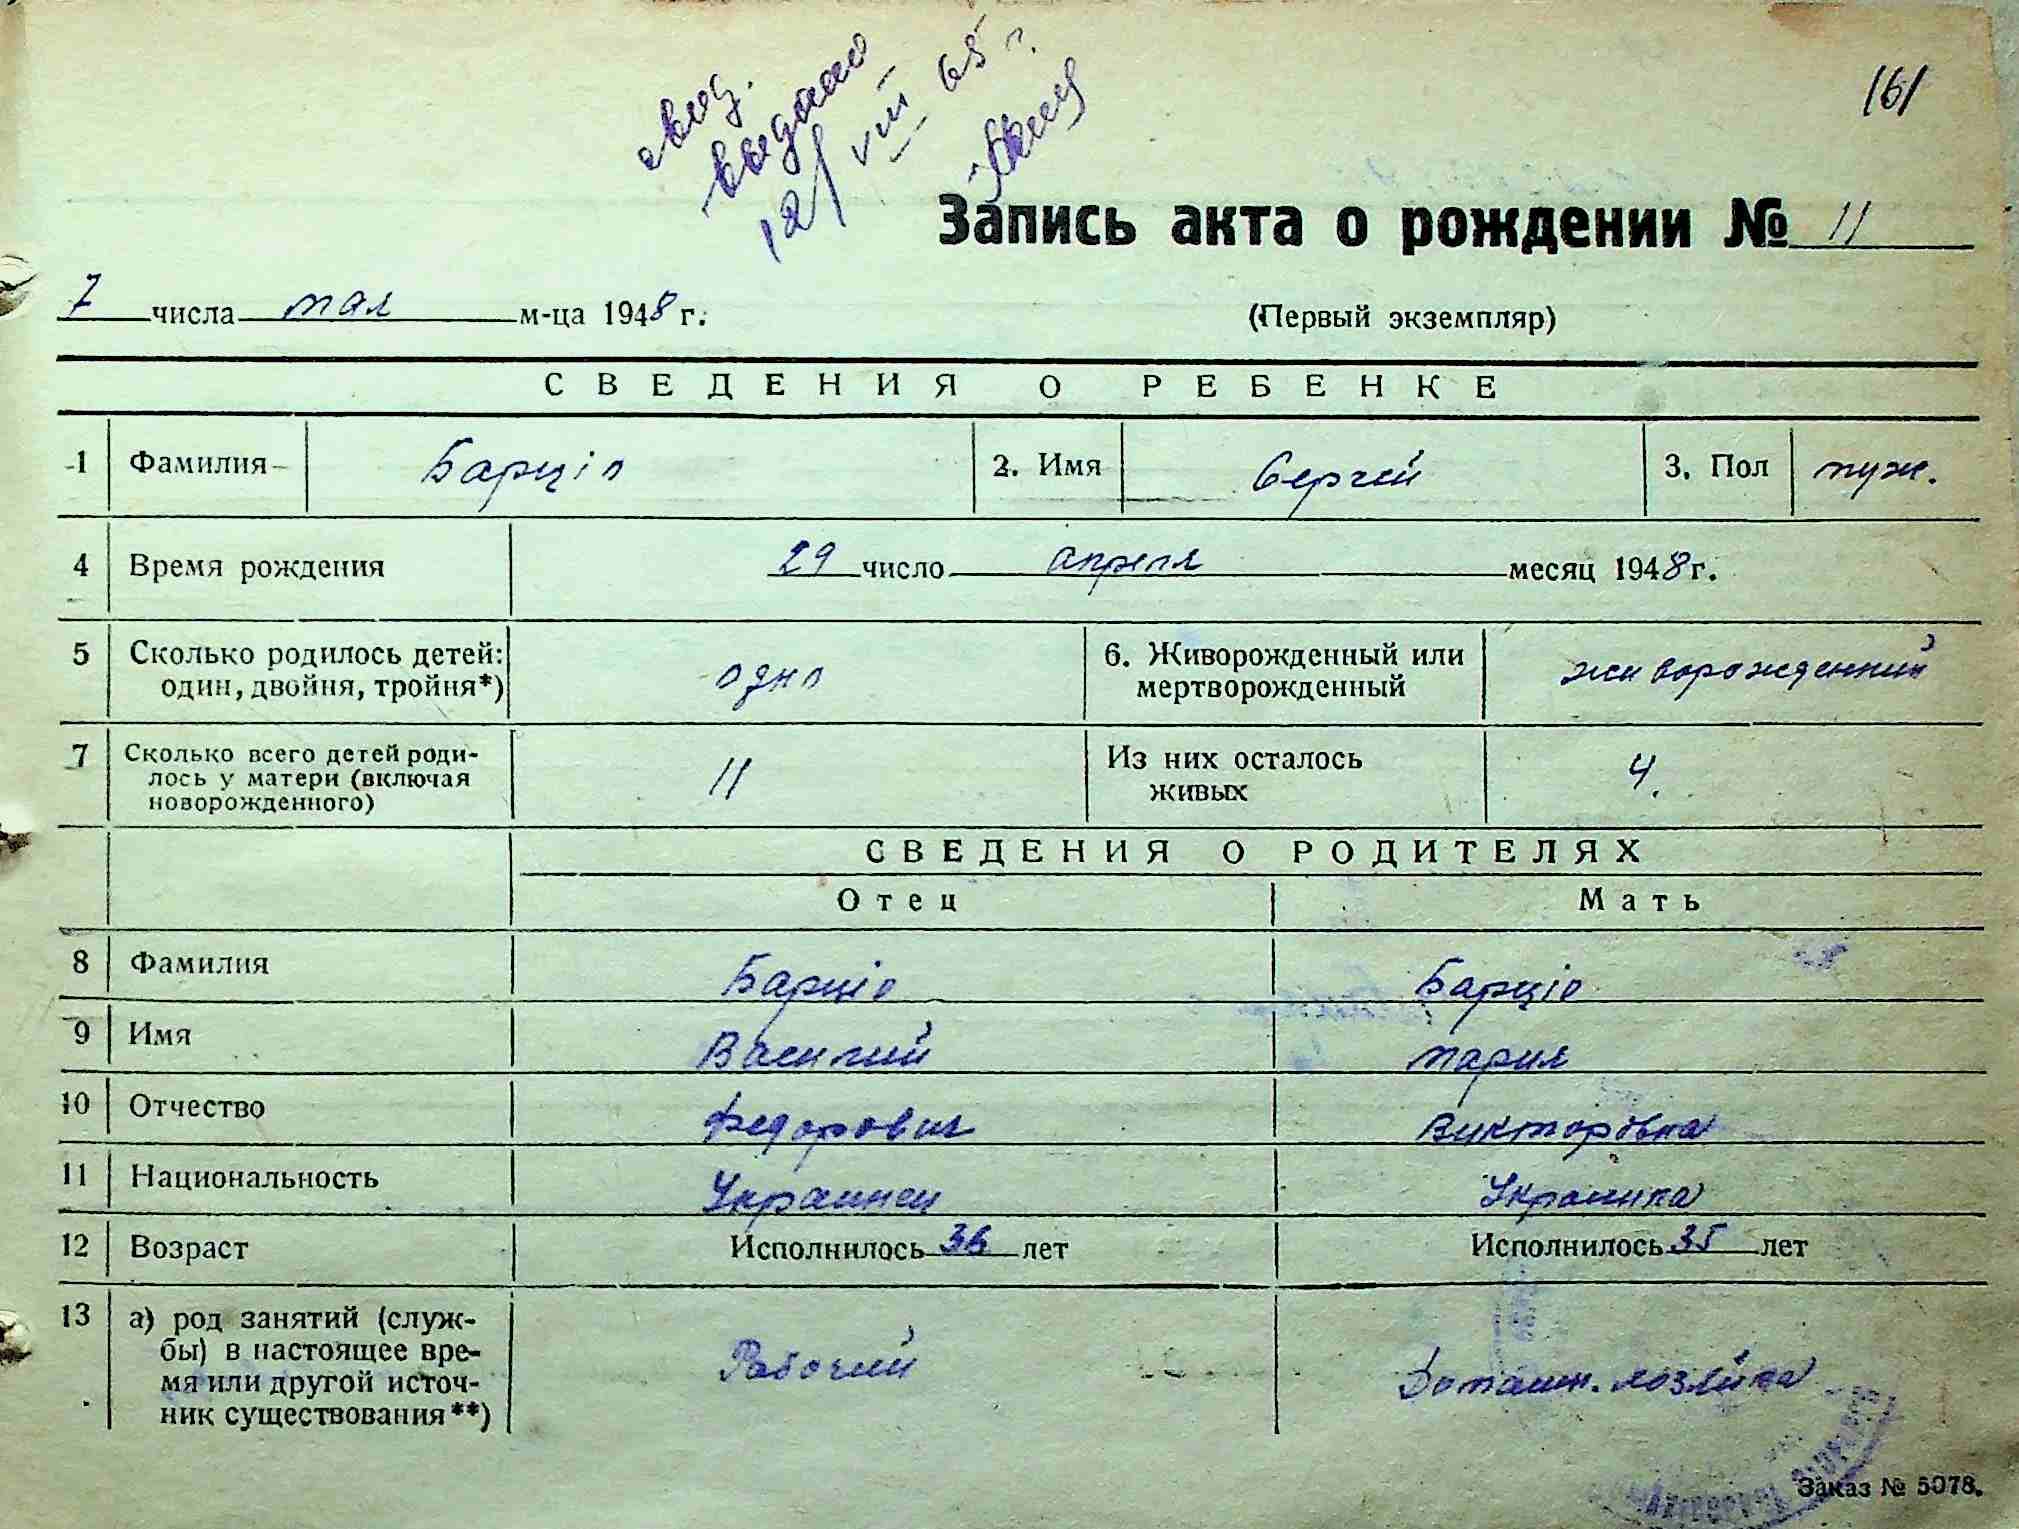 161
свид.
видано
12/VIII 65 г.
Запись акта о рождении № 11
7 числа мая м-ца 1948 г.
(Первый экземпляр)
СВЕДЕНИЯ О РЕБЕНКЕ
1 Фамилия Барціо 2. Имя Сергей 3. Пол муж.
4 Время рождения 29 число апреля месяц 1948 г.
5 Сколько родилось детей: один, двойня, тройня*) одно 6. Живорожденный или мертворожденный живорожденний
7 Сколько всего детей родилось у матери (включая новорожденного) 11 Из них осталось живых 4.
СВЕДЕНИЯ О РОДИТЕЛЯХ
Отец Мать
8 Фамилия Барціо Барціо
9 Имя Василий Мария
10 Отчество Федорович Викторовна
11 Национальность Украинец Украинка
12 Возраст Исполнилось 36 лет Исполнилось 35 лет
13 а) род занятий (служ-
бы) в настоящее вре-
мя или другой источ-
ник существования**) Рабочий Домашн. хозяйка
Заказ № 5078.